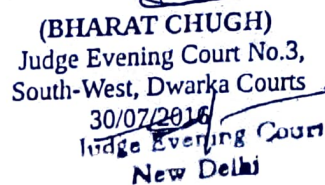 (BHARAT CHUGH)
Judge Evening Court No.3,
South-West, Dwarka Courts
30/07/2016
Judge Evening Court
New Delhi